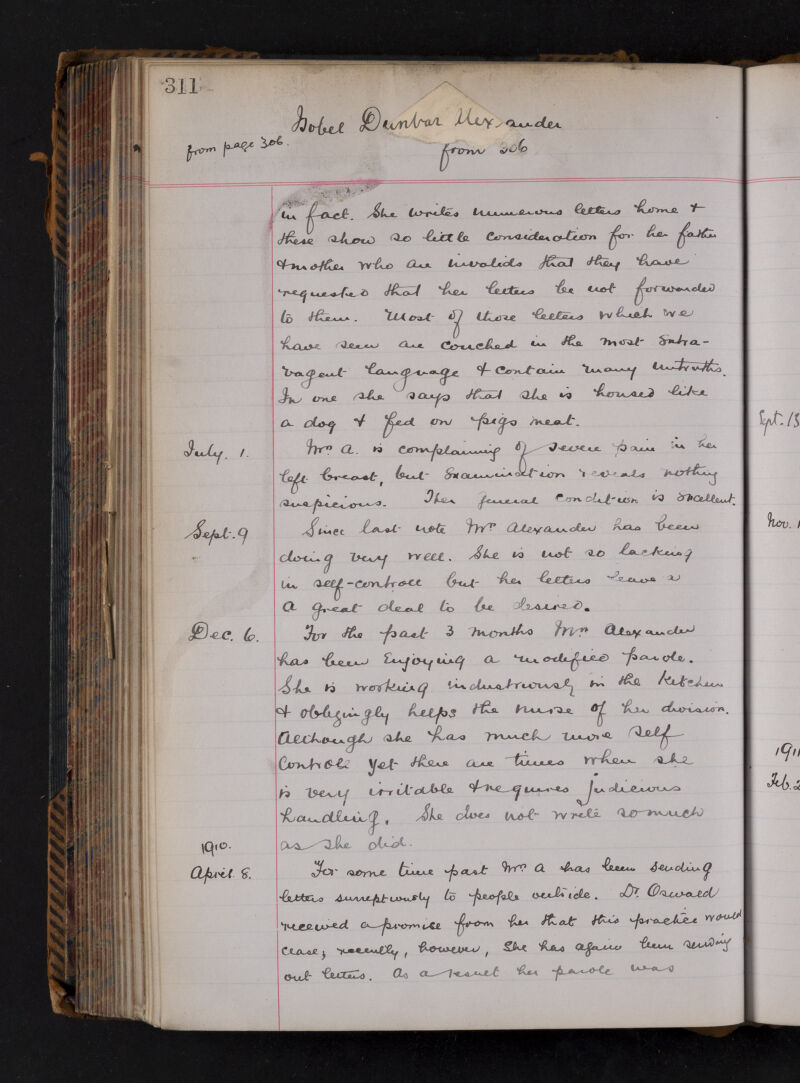 311
Isobel Dunbar Alexander
from page 306.
from 306
in fact. She writes numerous letters home &
these show so little consideration for her father
& mother who are invalids that they have
requested that her letters be not forwarded
to them. Most of those letters which we
have seen are couched in the most extra-
vagent language & contain many untruths.
In one she says that she is housed like
a dog & fed on pigs meat.
July. 1. Mrs A. is complaining of severe pain in her
left breast, but examination reveals nothing
suspicious. Her general condition is excellent.
Sept. 9 Since last note Mrs Alexander has been
doing very well. She is not so lacking
in self-controll but her letters leave
a great deal to be desired.
Dec. 6. For the past 3 months Mrs Alexander
has been enjoying a modified parole.
She is working industriously in the kitchen
& obligingly helps the nurse of her division.
Although she has much more self
controll yet there are times when she
is very irritable & requires judicious
handling. She does not write so much
as she did.
1910.
April 8. For some time past Mrs A has been sending
letters surreptiously to people outside. Dr. Oswald
received a promise from her that this practice would
cease; recently, however, she has again been sending
out letters. As a result her parole was
Spt. 13
Nov. 1
191
Feb. 2